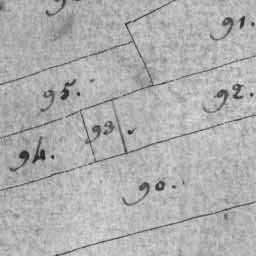 91.
95.
92.
93.
94.
90.